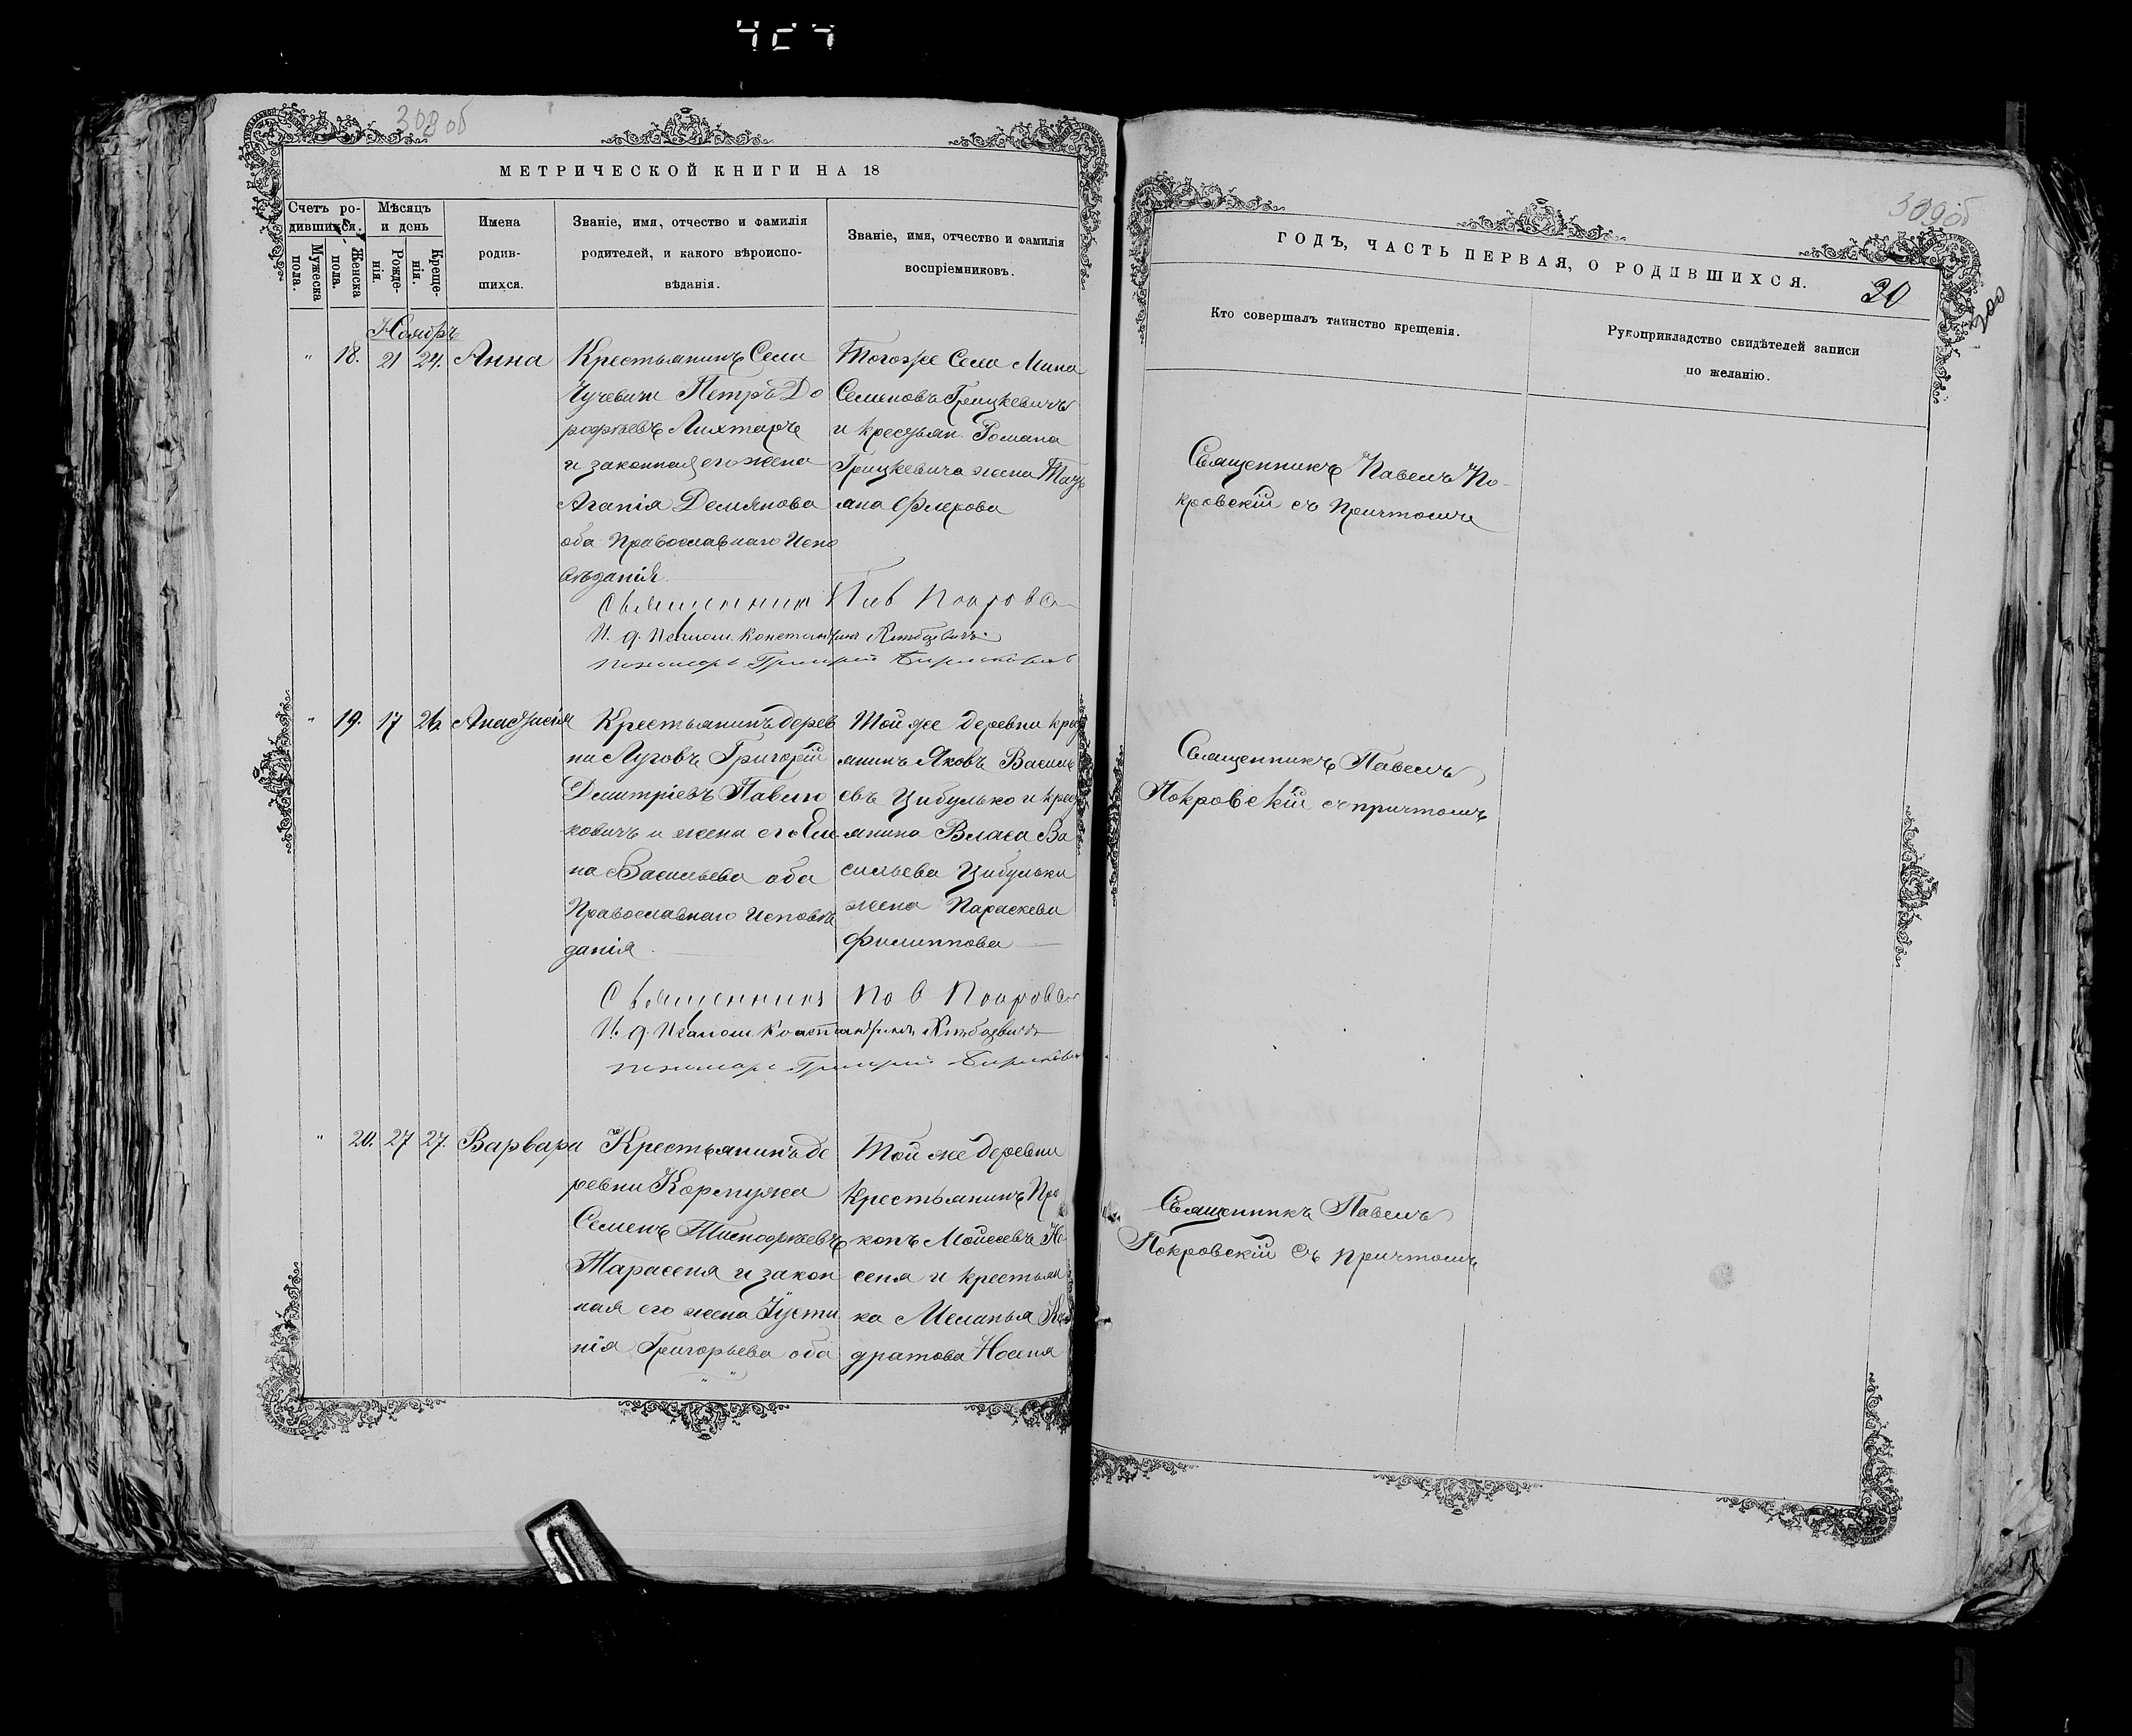 308 об
МЕТРИЧЕСКОЙ КНИГИ НА 18
Счетъ ро-
дившихся.
Мѣсяцъ
и день
Мужеска
пола.
Женска
пола.
Рожде-
нія.
Креще-
нія.
Имена
родив-
шихся.
Званіе, имя, отчество и фамилія
родителей, и какого вѣроиспо-
вѣданія.
Званіе, имя, отчество и фамилія
воспріемниковъ.
Ноябрь
" 18. 21 24. Анна
Крестьянинъ Села
Чучевичи Петръ До
рофѣевъ Лихтаръ
и законная его жена
Агапія Демянова
оба Православнаго Испо
вѣданія
Тогоже Села Мина
Семеновъ Грицкевичъ
и крестьян. Романа
Грицкевича жена Тать
яна Флерова
Священникъ Пав Покровс
И. д. Псалом. Константинъ
пономарь Григорій
" 19. 17 26. Анастасія
Крестьянинъ дерев
ни Луговъ Григорій
Димитріевъ Павлю
ковичъ и жена его Еле
на Васильева оба
Православнаго Исповѣ
данія
Той же деревни крест
янинъ Яковъ Василь
евъ Цибулько и крест
янина Власа Ва
сильева Цибульки
жена Параскева
Филиппова
Священникъ Пав Покровс
И. д. Псалом Константинъ
пономарь Григорій
" 20. 27 27. Варвара
Крестьянинъ де
ревни
Семенъ Тимофѣевъ
Тарасеня и закон
ная его жена Іусти
нія Григорьева оба
Той же деревни
Крестьянинъ Про
копъ Мойсеевъ Но
сеня и крестьян
ка Меланья Кон
дратова Носеня
309 об
ГОДЪ, ЧАСТЬ ПЕРВАЯ, О РОДИВШИХСЯ.
20
300
Кто совершалъ таинство крещенія.
Рукоприкладство свидѣтелей записи
по желанію.
Священникъ Павелъ По-
кровскій съ Причтомъ
Священникъ Павелъ
Покровскій съ причтомъ
Священникъ Павелъ
Покровскій съ причтомъ